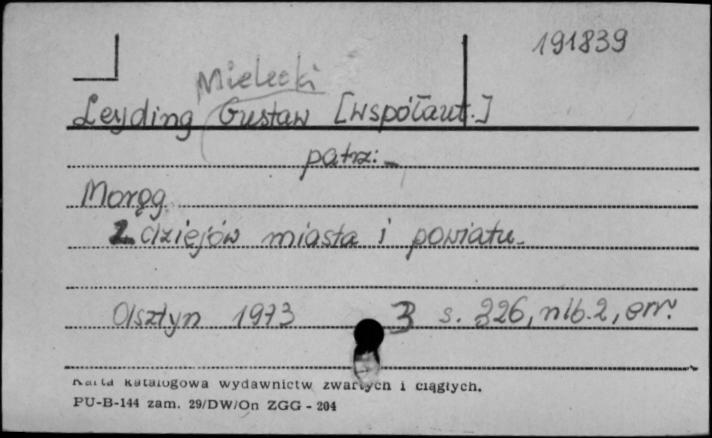 191839
Mielecki
Leyding Gustaw [współaut.]
patrz:
Morąg.
Z dziejów miasta i powiatu.
Olsztyn 1973 3 s. 326, nlb. 2, err.
Karta katalogowa wydawnictw zwartych i ciągłych.
PU-B-144 zam. 29/DW/On ZGG - 204